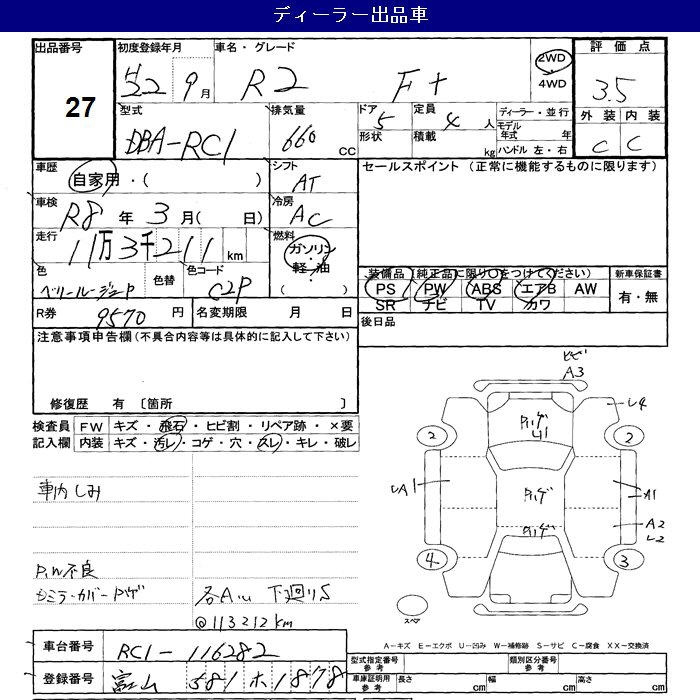 ディーラー出品車
出品番号
27
初度登録年月
22 9月
車名・グレード
R2 F+
2WD
4WD
評価点
3.5
外装 内装
C C
型式
DBA-RC1
排気量
660 cc
ドア 5
形状
定員 4 人
積載 kg
ディーラー・並行
モデル年式 年
ハンドル 左・右
車歴
自家用・( )
シフト
AT
車検
R8年 3月( 日)
冷房
AC
走行
11万3千211km
燃料
ガソリン・
軽・油
( )
色
色替
色コード
C2P
R券
9570円
名変期限 月 日
セールスポイント (正常に機能するものに限ります)
装備品(純正品に限り○をつけてください)
PS PW ABS エアB AW
SR ナビ TV カワ
新車保証書
有・無
後日品
注意事項申告欄(不具合内容等は具体的に記入して下さい)
修復歴 有 〔箇所 〕
検査員 FW キズ・飛石・ヒビ割・リペア跡・×要
記入欄 内装 キズ・汚レ・コゲ・穴・スレ・キレ・破レ
車内しみ
P.W不良
ミラーカバーハゲ
各A1U 下廻りS
@113212km
車台番号
RC1-116282
登録番号
富山 581 ホ 1878
ヒビ
A3
ハゲ
U1
ハゲ
ハゲ
2
2
4
3
A1
A2
スペア
A-キズ E-エクボ U-凹み W-補修跡 S-サビ C-腐食 XX-交換済
型式指定番号
参考
類別区分番号
参考
車庫証明用
参考
長さ cm 幅 cm 高さ cm